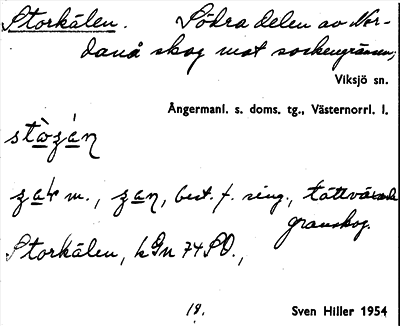 Storkälen. Södra delen av Nor-
danå skog mot sockengränsen,
Viksjö sn.
Ångermanl. s. doms. tg., Västernorrl. l.
zar m., zan, best. f. sing., tättväxande
granskog.
Storkälen, kGn 74 SO.,
19.
Sven Hiller 1954